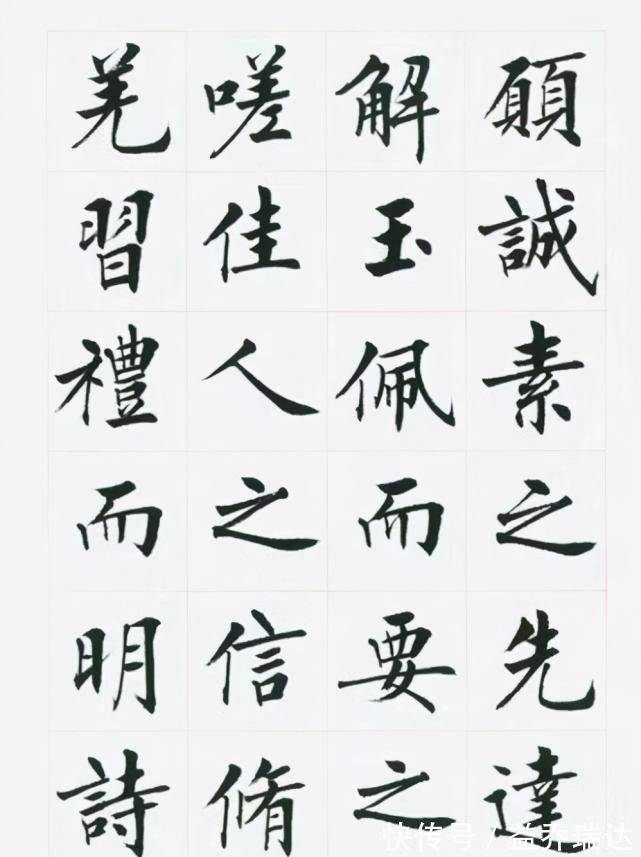 願誠素之先達
解玉佩而要之
嗟佳人之信脩
羌習禮而明詩
快传号 / 益乔瑞达